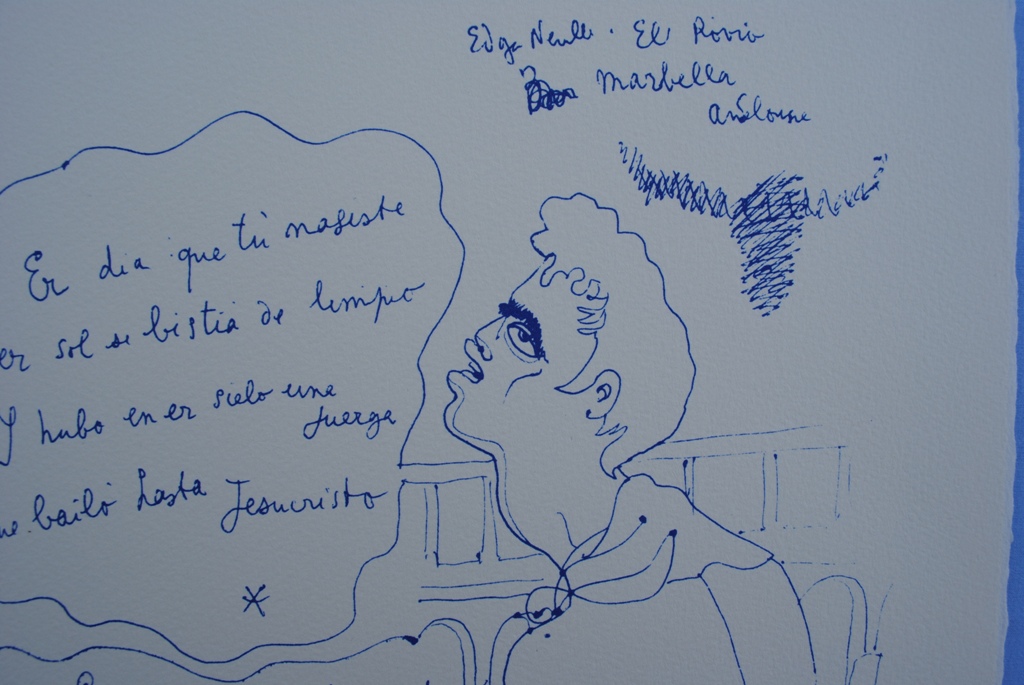 Edga Neville. El Rovio
Marbella
Er dia que tú nasiste
er sol se bistia de limpio
Y hubo en er sielo una
juerga
bailó hasta Jesucristo